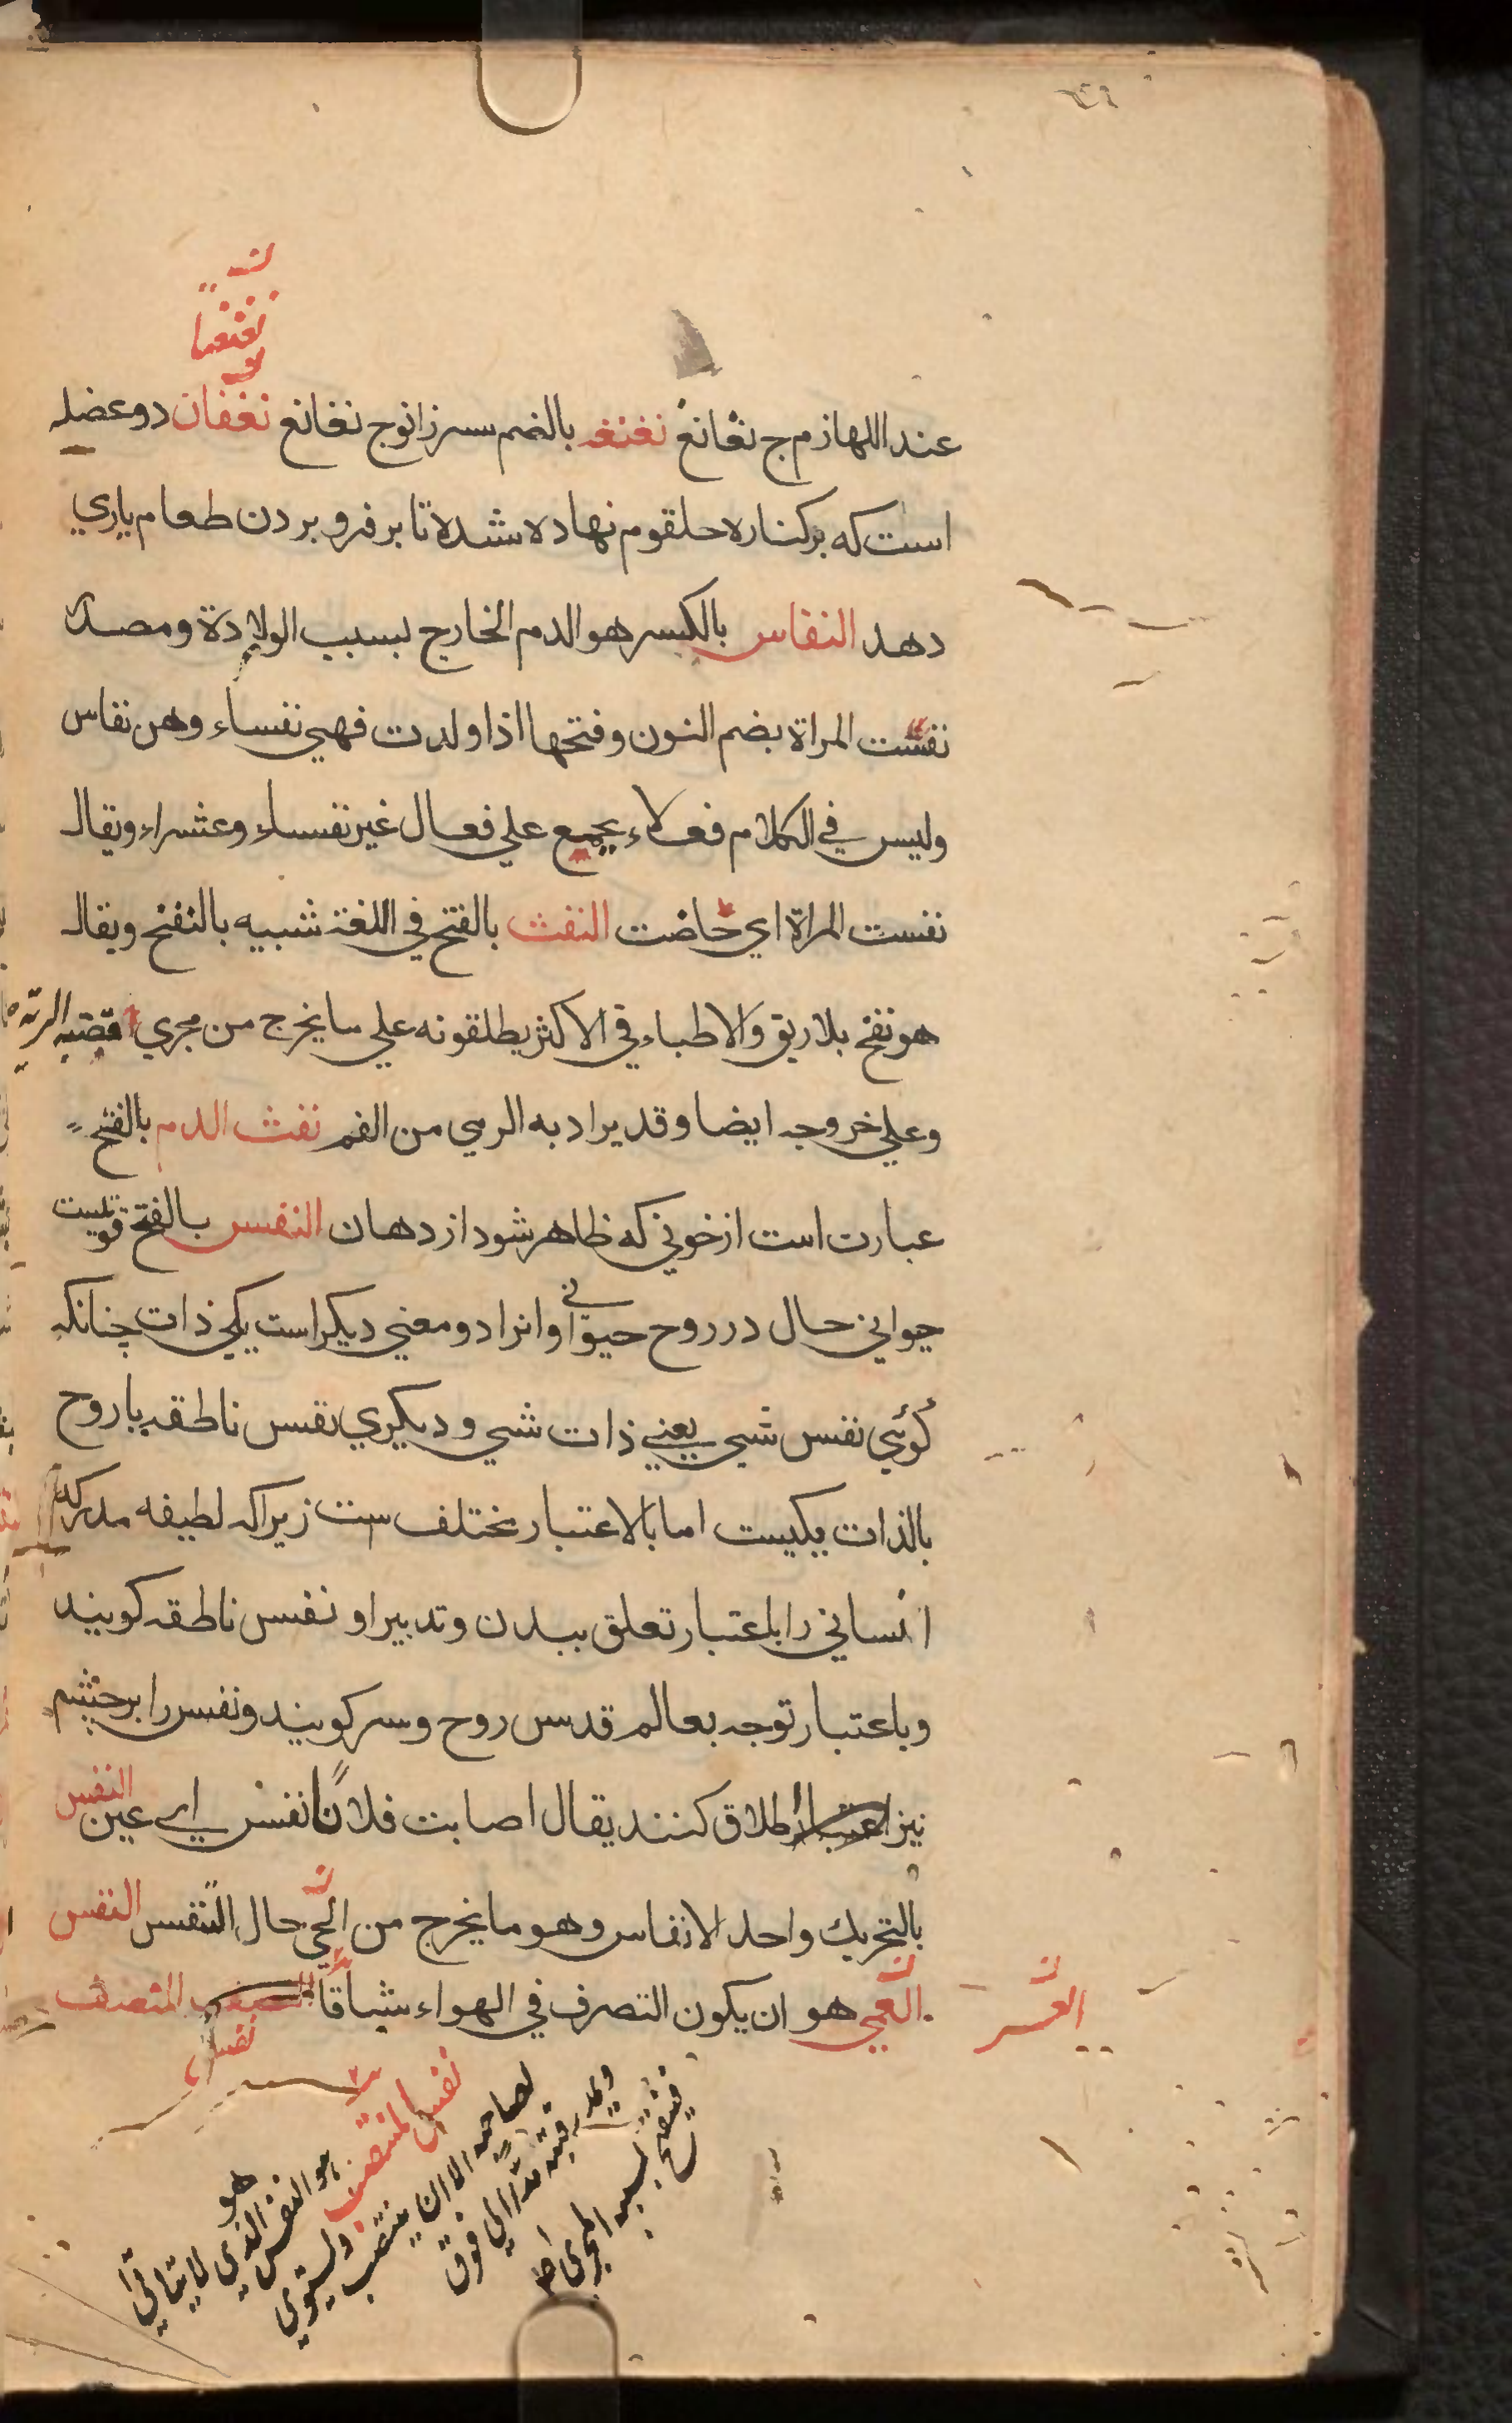 ن
نغنغا
عند اللهازم ج نغانغ نغنغه بالضم سرزانو ج نغانغ نغفان دو عضله
است که بر کناره حلقوم نهاده شده تا بر فرو بردن طعام یاري
دهد النفاس بالكسر هو الدم الخارج بسبب الولادة ومصدر
نفست المراة بضم النون وفتحها اذا ولدت فهي نفساء وهن نفاس
وليس في الكلام فعلاء يجمع علي فعال غير نفساء وعشراء ويقال
نفست المراة اي حاضت النفث بالفتح في اللغة شبيه بالنفخ ويقال
هو نفخ بلا ريق والاطباء في الاكثر يطلقونه علي ما يخرج من مجري قصبه الريه
وعلي خروجه ايضا وقد يراد به الرمي من الفم نفث الدم بالفتح
عبارت است از خوني که ظاهر شود از دهان النفس بالفتح قوتیست
حیواني حال در روح حیواني و انرا دو معني دیکر است یکي ذات چنانکه
کوئي نفس شي یعني ذات شي و دیکري نفس ناطقه با روح
بالذات یکیست اما بالاعتبار مختلف ست زیراکه لطیفه مدرکه
انساني را باعتبار تعلق ببدن و تدبیر او نفس ناطقه کویند
و باعتبار توجه بعالم قدس روح و سر کویند و نفس را بر چشم
نیز اطلاق کنند یقال اصابت فلانا نفس اي عین النفس
بالتحريك واحد الانفاس وهو ما يخرج من الحي حال التنفس النفس
العسر
العمي هو ان يكون التصرف في الهواء شاقا المنتصف
نفس
نفس المنتصب هو النفس الذي لا يتاتي
لصاحبه الا ان ينتصب ويستوي
ويمد رقبته مدا الي فوق
فينفتح بسببه المجري